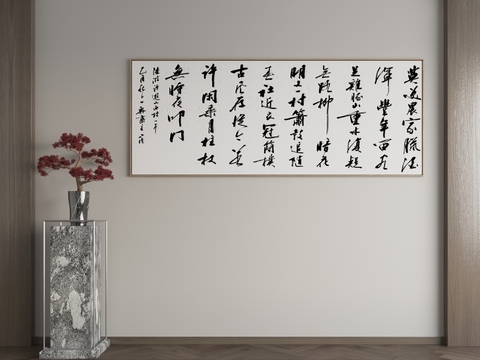 莫笑農家臘酒
渾豐年留客
足雞豚山重水複疑
無路柳暗花
明又一村簫鼓追隨
春社近衣冠簡樸
古風存從今若
許閑乘月拄杖
無時夜叩門
陸游詩遊山西村一